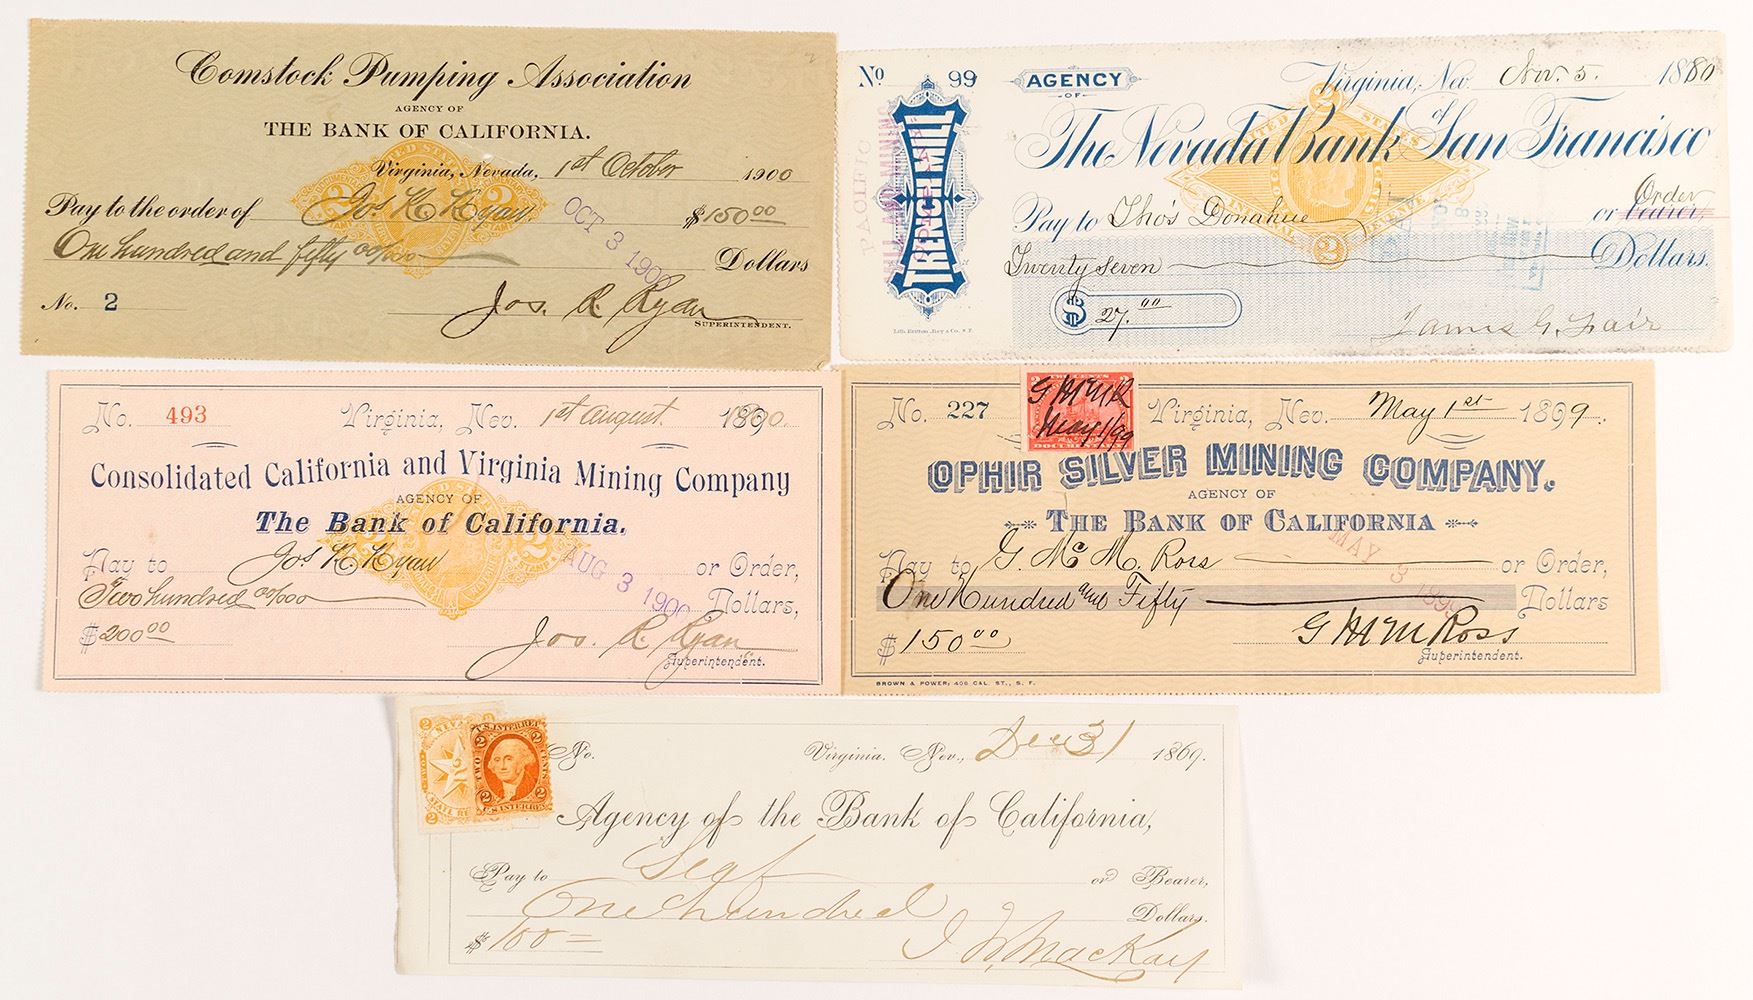 Comstock Pumping Association
AGENCY OF
THE BANK OF CALIFORNIA.
Virginia, Nevada, 1st October 1900
Pay to the order of Jos R Ryan $150 00
One hundred and fifty 00/100 Dollars
OCT 3 1900
No. 2
Jos. R. Ryan
SUPERINTENDENT.
No 99
AGENCY
OF
Virginia, Nev. Nov. 5. 1880
The Nevada Bank of San Francisco
TRENCH MILL
PACIFIC
Pay to Tho's Donahue or bearer,
Order
Twenty Seven Dollars.
$ 27. 00
James G. Fair
No. 493 Virginia, Nev. 1st August. 1890
Consolidated California and Virginia Mining Company
AGENCY OF
The Bank of California.
Pay to Jos R Ryan or Order,
Two hundred 00/100 Dollars,
AUG 3 1900
$200 00
Jos. R. Ryan
Superintendent.
No. 227 Virginia, Nev. May 1st 1899.
TWO CENTS
G McM R
May 1/99
DOCUMENTARY
OPHIR SILVER MINING COMPANY.
AGENCY OF
THE BANK OF CALIFORNIA
Pay to G. Mc M. Ross or Order,
One Hundred and Fifty Dollars
MAY 3 1899
$150 00
G McM Ross
Superintendent.
BROWN & POWER, 406 CAL. ST., S. F.
No. Virginia, Nev., Dec 31 1869.
U.S. INTER. REV.
TWO CENTS
Agency of the Bank of California,
Pay to Self or Bearer,
One hundred Dollars.
$ 100 =
J W Mackay